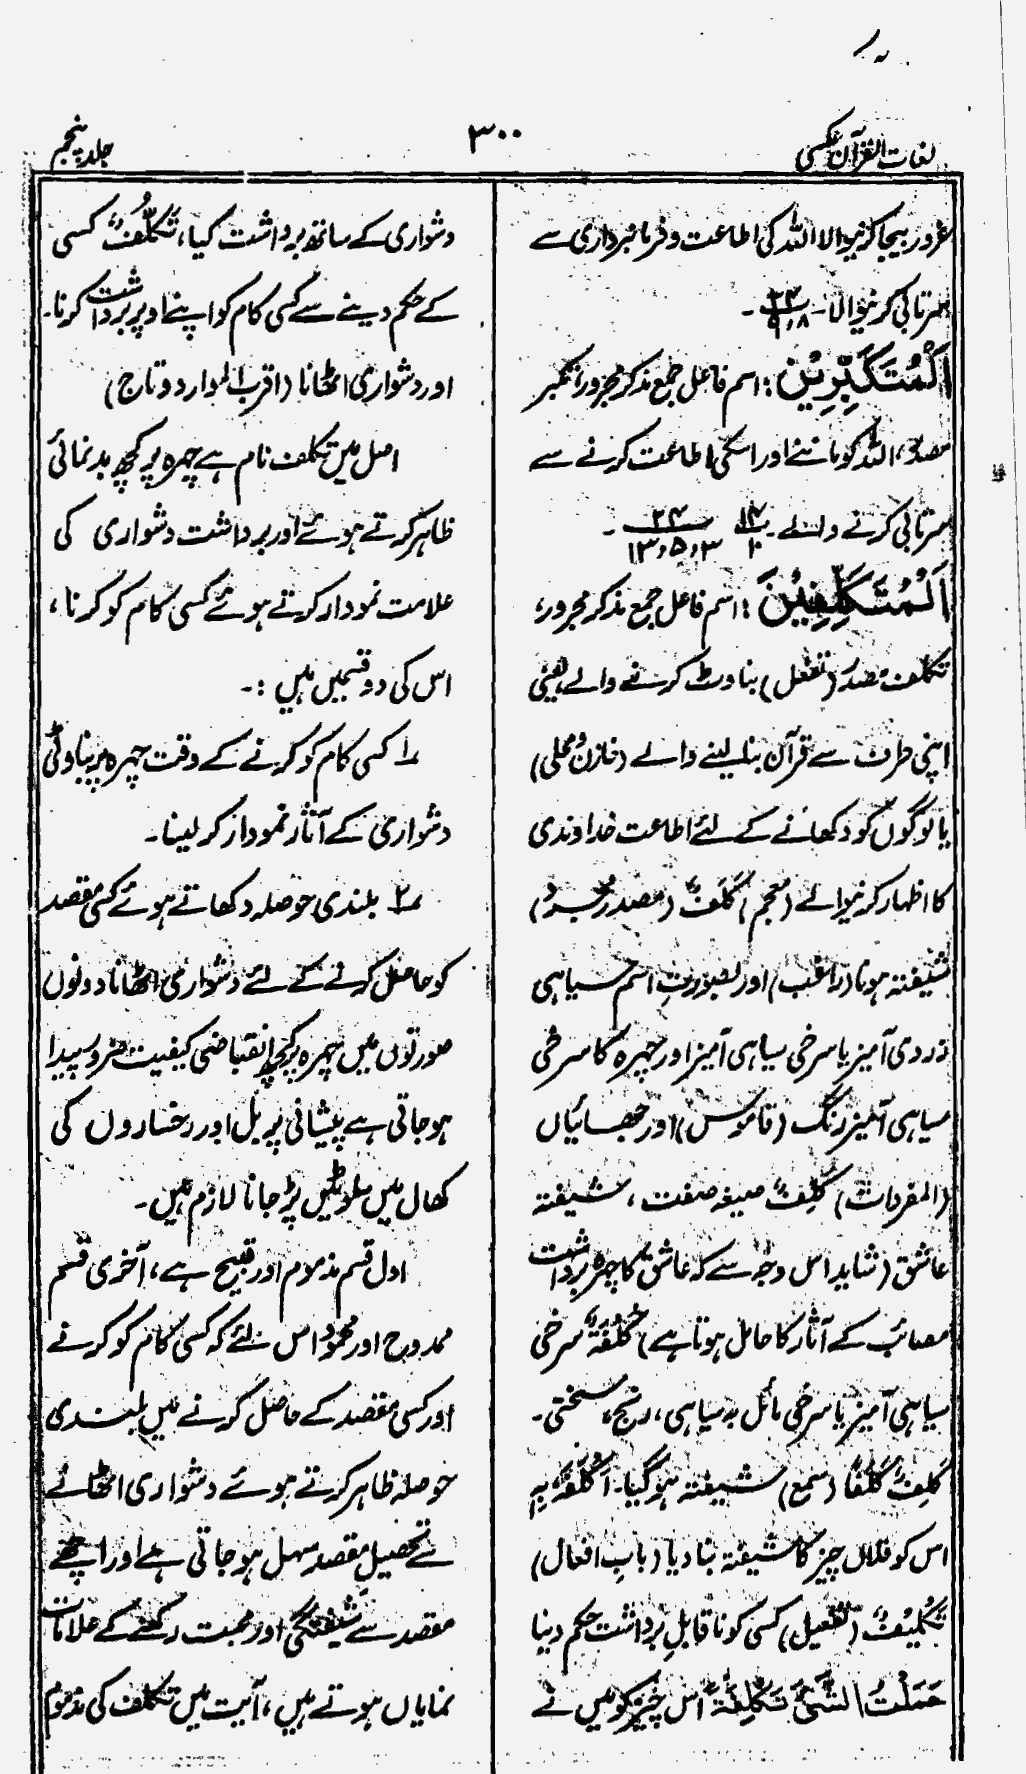 لغات القرآن عکسی
۳۰۰
جلد پنجم
غرور بیجا کرنیوالا اللہ کی اطاعت و فرمانبرداری سے
سرتابی کرنیوالا۔ ۲۴/۹،۸ ۔
اَلْمُتَكَبِّرِيْنَ: اسم فاعل جمع مذکر مجرور، تکبر
مصدر، اللہ کو ماننے اور اسکی اطاعت کرنے سے
سرتابی کرنے والے۔ ۱۴/۱۰ ۲۴/۱۳،۵،۳ ۔
اَلْمُتَكَلِّفِيْنَ: اسم فاعل جمع مذکر مجرور،
تکلف مصدر (تفعل) بناوٹ کرنے والے یعنی
اپنی طرف سے قرآن بنا لینے والے (خازن و محلی)
یا لوگوں کو دکھانے کے لئے اطاعت خداوندی
کا اظہار کرنیوالے (معجم) كَلَفٌ (مصدر مجرد)
شیفتہ ہونا (راغب) اور بصورتِ اسم سیاہی
زردی آمیز یا سرخی سیاہی آمیز اور چہرہ کا سرخی
سیاہی آمیز رنگ (قاموس) اور جھائیاں
(المفردات) كَلِفٌ صیغہ صفت، شیفتہ
عاشق (شاید اس وجہ سے کہ عاشق کا چہرہ برداشت
مصائب کے آثار کا حامل ہوتا ہے) كُلْفَةٌ سرخی
سیاہی آمیز یا سرخی مائل بہ سیاہی، رنج، سختی۔
كَلِفَ كَلَفًا (سمع) شیفتہ ہوگیا۔ اَكْلَفَهٗ بِهٖ
اس کو فلاں چیز کا شیفتہ بنا دیا (باب افعال)
تَكْلِيْفٌ (تفعیل) کسی کو ناقابلِ برداشت حکم دینا
حَمَلْتُ الشَّىْءَ تَكْلِفَةً اس چیز کو میں نے
دشواری کے ساتھ برداشت کیا، تَكَلُّفٌ کسی
کے حکم دینے سے کسی کام کو اپنے اوپر برداشت کرنا۔
اور دشواری اٹھانا (اقرب الموارد و تاج)
اصل میں تکلف نام ہے چہرہ پر کچھ بدنمائی
ظاہر کرتے ہوئے اور برداشت دشواری کی
علامت نمودار کرتے ہوئے کسی کام کو کرنا،
اس کی دو قسمیں ہیں :۔
۱ کسی کام کو کرنے کے وقت چہرہ پر بناوٹی
دشواری کے آثار نمودار کر لینا۔
۲ بلندی حوصلہ دکھاتے ہوئے کسی مقصد
کو حاصل کرنے کے لئے دشواری اٹھانا دونوں
صورتوں میں چہرہ پر کچھ انقباضی کیفیت ضرور پیدا
ہوجاتی ہے پیشانی پر بل اور رخساروں کی
کھال میں سلوٹیں پڑ جانا لازم ہیں۔
اول قسم مذموم اور قبیح ہے، آخری قسم
ممدوح اور محمود اس لئے کہ کسی کام کو کرنے
اور کسی مقصد کے حاصل کرنے میں بلندی
حوصلہ ظاہر کرتے ہوئے دشواری اٹھانے
سے تحصیل مقصد سہل ہوجاتی ہے اور اچھے
مقصد سے شیفتگی اور محبت رکھنے کے علامات
نمایاں ہوتے ہیں، آیت میں تکلف کی مذموم